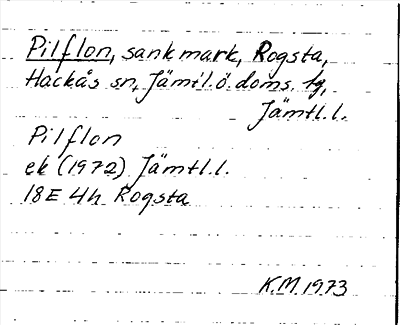 Pilflon, sankmark, Rogsta,
Hackås sn, Jämtl.ö.doms. tg,
Jämtl.l.
Pilflon
ek (1972) Jämtl.l.
18E 4h Rogsta
K.M. 1973